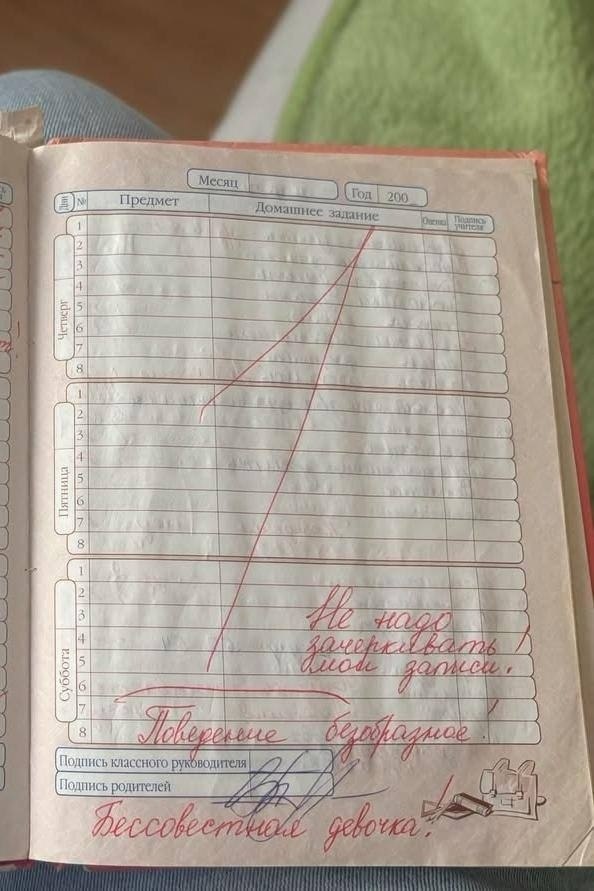 Месяц
Год 200
Дни № Предмет Домашнее задание Оценка Подпись учителя
Четверг
1
2
3
4
5
6
7
8
Пятница
1
2
3
4
5
6
7
8
Суббота
1
2
3
4
5
6
7
8
Не надо
зачеркивать
мои записи!
Поведение безобразное!
Подпись классного руководителя
Подпись родителей
Бессовестная девочка!